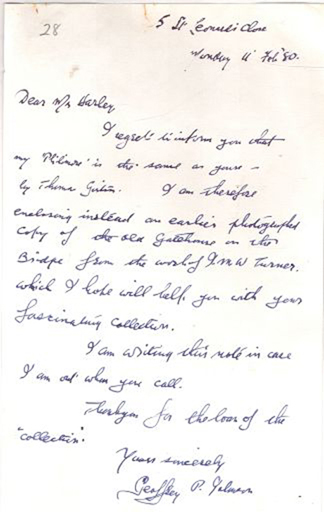 28
5 St Leonards Close
Monday 11 Feb 80.
Dear Mr Harley,
I regret to inform you that
my 'Milnore' is the same as yours –
by Thomas Girtin. I am therefore
enclosing instead an earlier photographed
copy of the old Gatehouse on the
Bridge from the work of J.M.W Turner.
which I hope will help you with your
fascinating collection.
I am writing this note in case
I am out when you call.
Thankyou for the loan of the
"collection".
Yours sincerely
Geoffrey P.